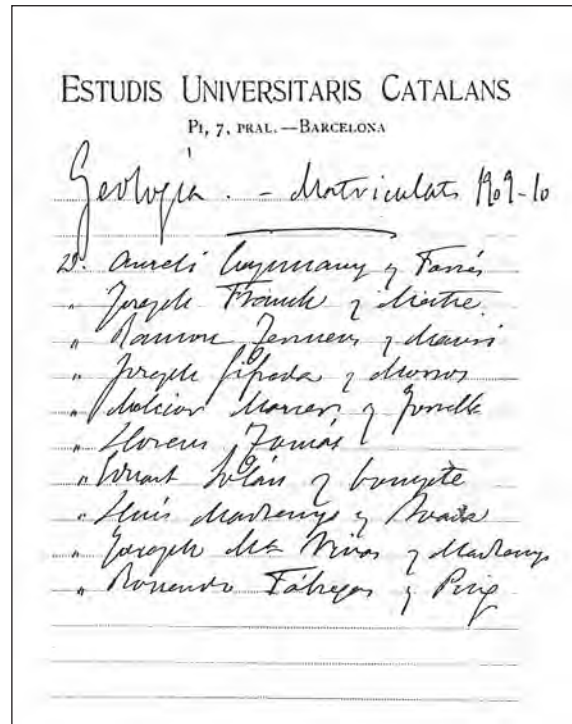 ESTUDIS UNIVERSITARIS CATALANS
PI, 7, PRAL.—BARCELONA
Geología. - Matriculats 1909-10
D. Aureli Capmany y Farrés
" Joseph Franch y Mestre.
" Ramon y
" Joseph Gifreda y Morros
" Melcior Marcer y
" Llorens Tomás
" Eduart y
" Lluís Marlenys y
" Joseph Mª Vivas y Marlenys
" Rossendo Fábregas y Puig